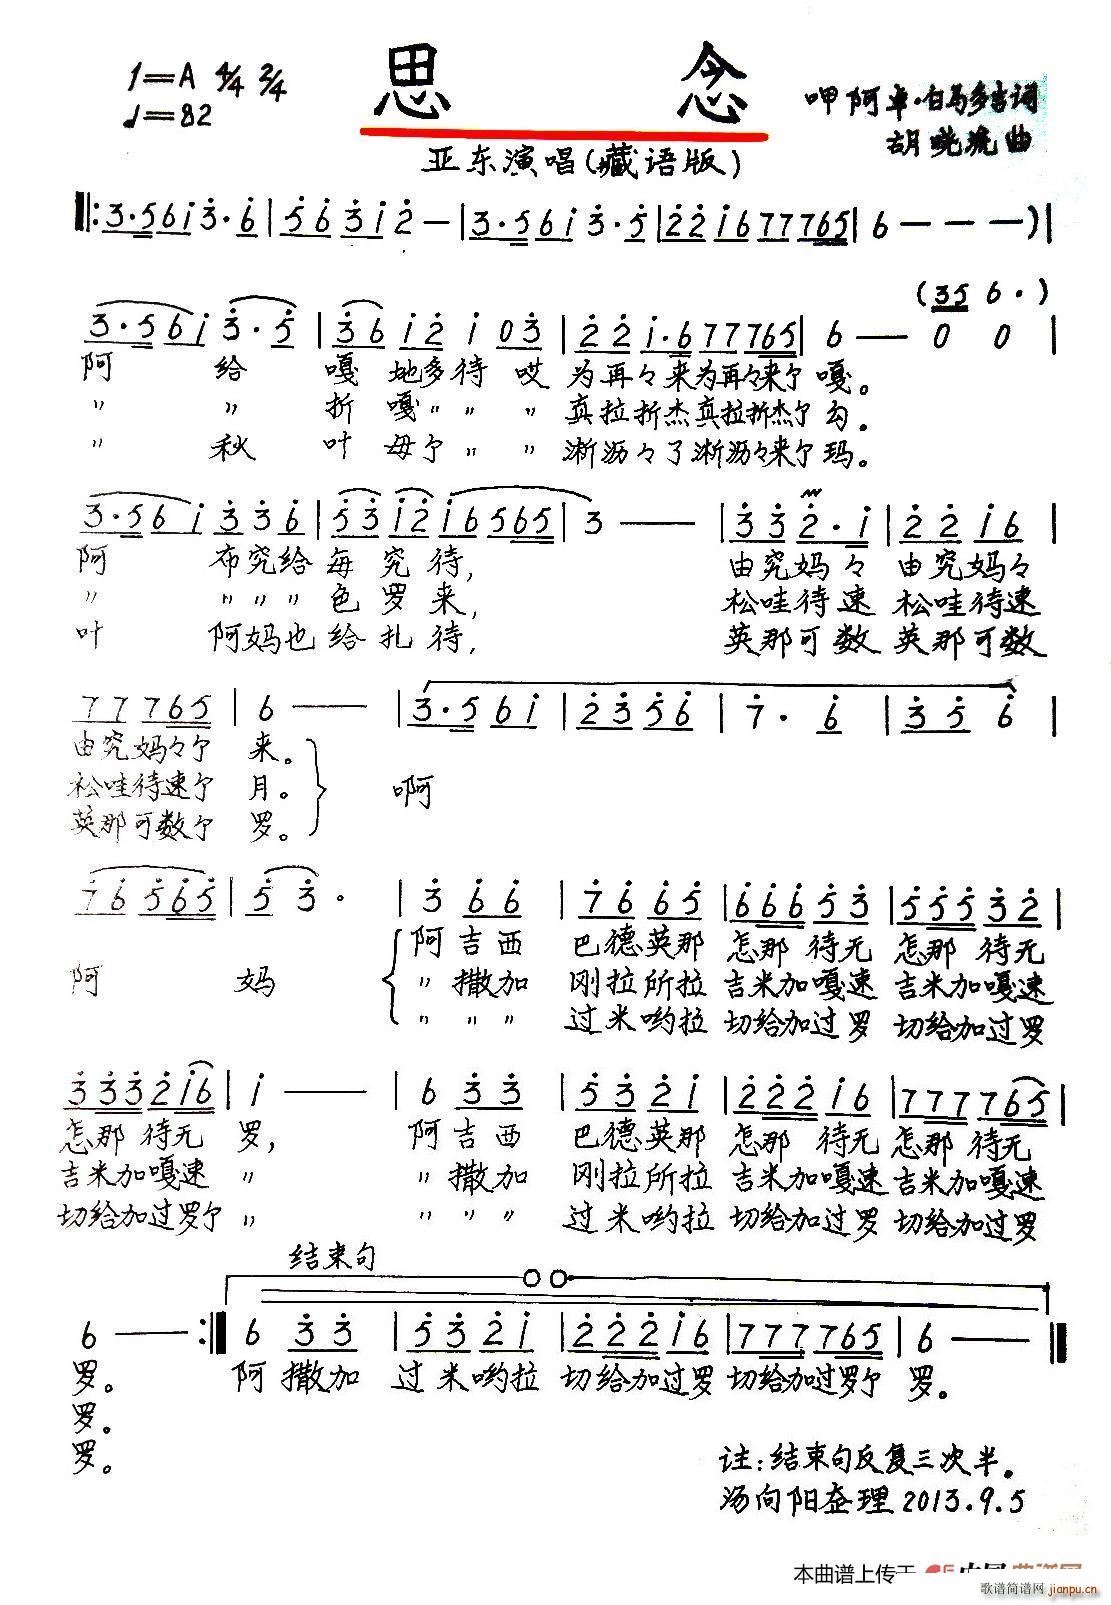 思 念
1=A 4/4 2/4
♩=82
呷阿卓·白马多吉词
胡晓流曲
亚东演唱(藏语版)
‖:3·561 3·6|56312—|3·561 3·5|2216777765|6———)|
(35 6·)
3·561 3·5|361210 3|221·6777765|6—00|
阿 给 嘎 地多待 哎 为再々来为再々来尔嘎。
〃 〃 折 嘎〃 〃 〃 真拉折杰真拉折杰尔勾。
〃 秋 叶 母尔〃 〃 淅沥々了淅沥々来尔玛。
3·561 336|531216565|3——|332·1|2216|
阿 布究给每 究 待, 由究妈々 由究妈々
〃 〃〃〃色 罗 来, 松哇待速 松哇待速
叶 阿妈也给扎待, 英那可数 英那可数
77765|6——|3·561|2356|7·6|356|
由究妈々尔 来。
松哇待速尔 月。 啊
英那可数尔 罗。
76565|53·|366|7665|66653|55532|
阿吉西 巴德英那 怎那 待无 怎那 待无
阿 妈 〃撒加 刚拉所拉 吉米加嘎速 吉米加嘎速
〃〃〃 过米哟拉 切给加过罗 切给加过罗
333216|1——|633|5321|22216|777765|
怎那 待无 罗, 阿吉西 巴德英那 怎那 待无 怎那 待无
吉米加嘎速 〃 〃撒加 刚拉所拉 吉米加嘎速 吉米加嘎速
切给加过罗尔 〃 〃〃〃 过米哟拉 切给加过罗 切给加过罗
结束句
6——:‖6 33|5321|22216|777765|6——‖
罗。 阿撒加 过米哟拉 切给加过罗 切给加过罗尔 罗。
罗。
罗。
注:结束句反复三次半。
汤向阳整理2013.9.5
本曲谱上传于
歌谱简谱网 jianpu.cn